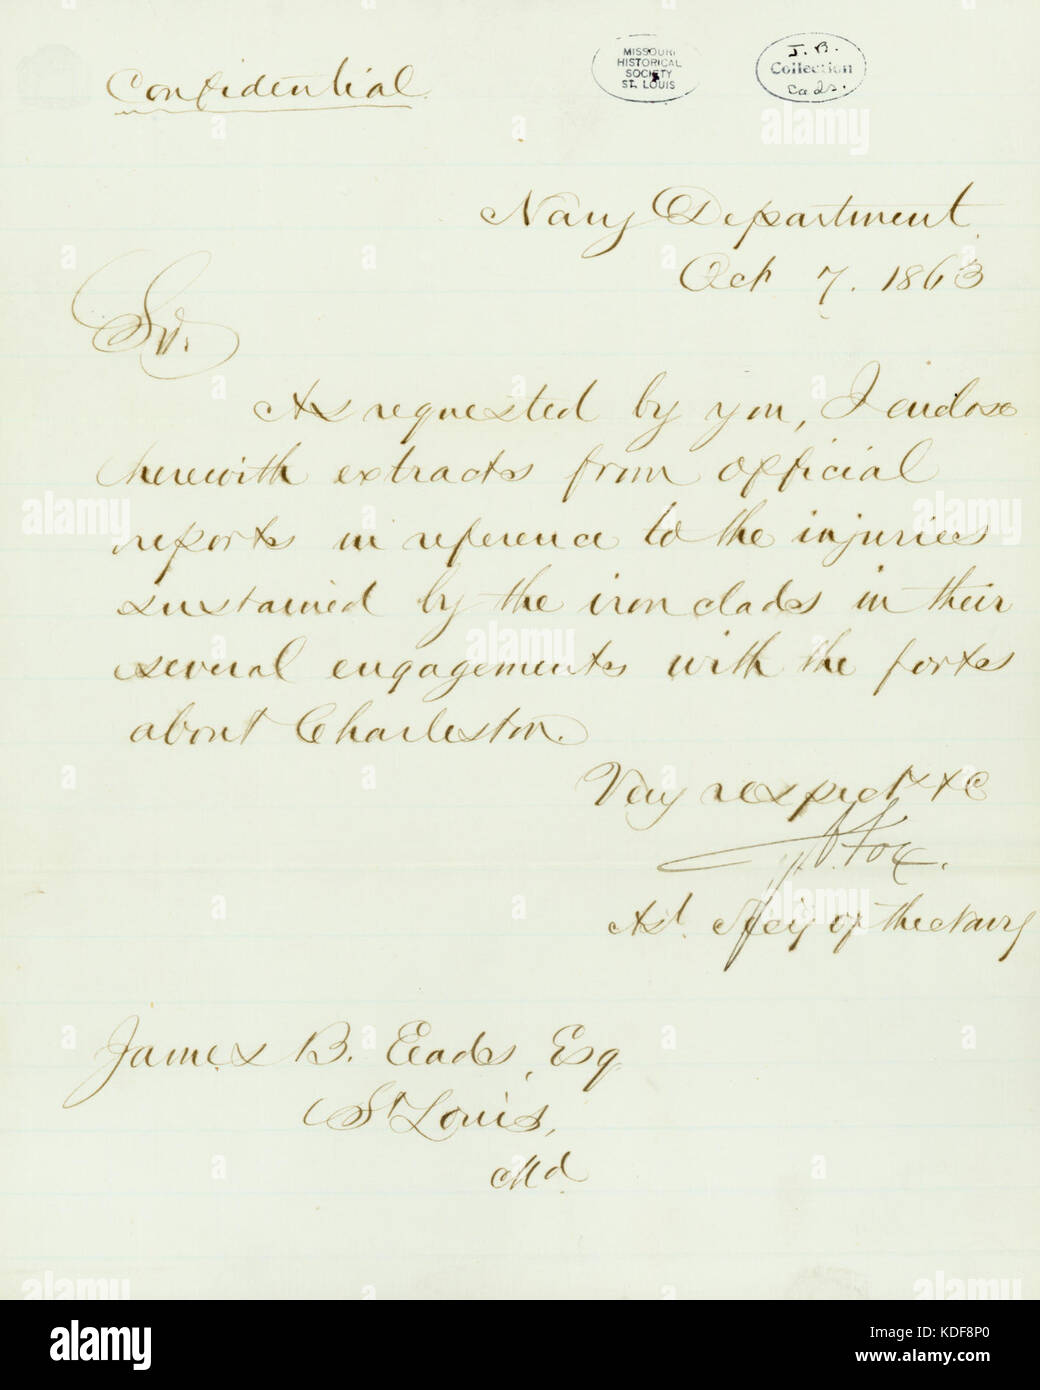 Confidential
MISSOURI
HISTORICAL
SOCIETY
ST. LOUIS
J. B.
Collection
Eads.
Navy Department
Oct 7. 1863
Sir.
As requested by you, I enclose
herewith extracts from official
reports in reference to the injuries
sustained by the iron clads in their
several engagements with the forts
about Charleston.
Very respect. &c
G. V. Fox.
Ast. Secy of the Navy
James B. Eads, Esq
St Louis,
Md.
alamy
Image ID: KDF8P0
www.alamy.com